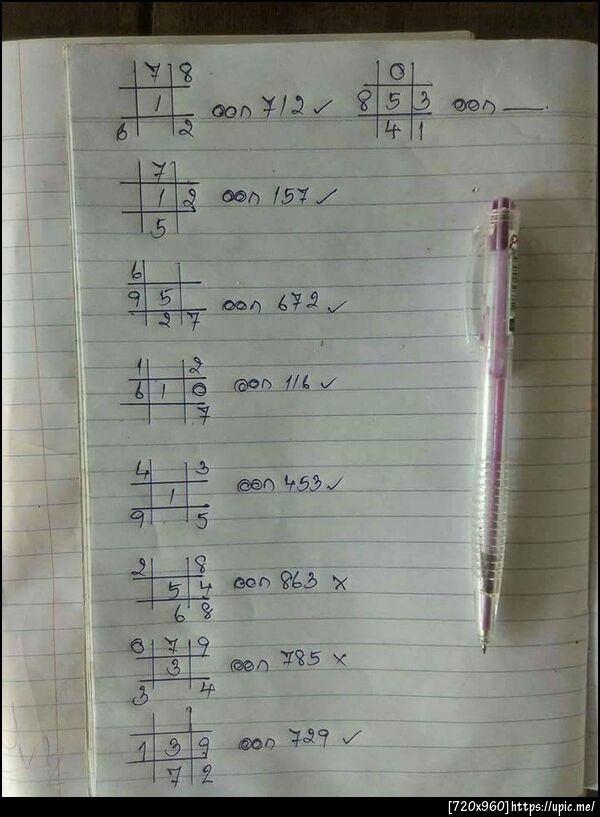 7 8 0
1 ออก 712 ✓ 8 5 3 ออก ___
6 2 4 1
7
1 2 ออก 157 ✓
5
6
9 5 ออก 672 ✓
2 7
1 2
6 1 0 ออก 116 ✓
7
4 3
1 ออก 453 ✓
9 5
2 8
5 4 ออก 863 ×
6 8
0 7 9
3 ออก 785 ×
3 4
1 3 9 ออก 729 ✓
7 2
[720x960]https://upic.me/